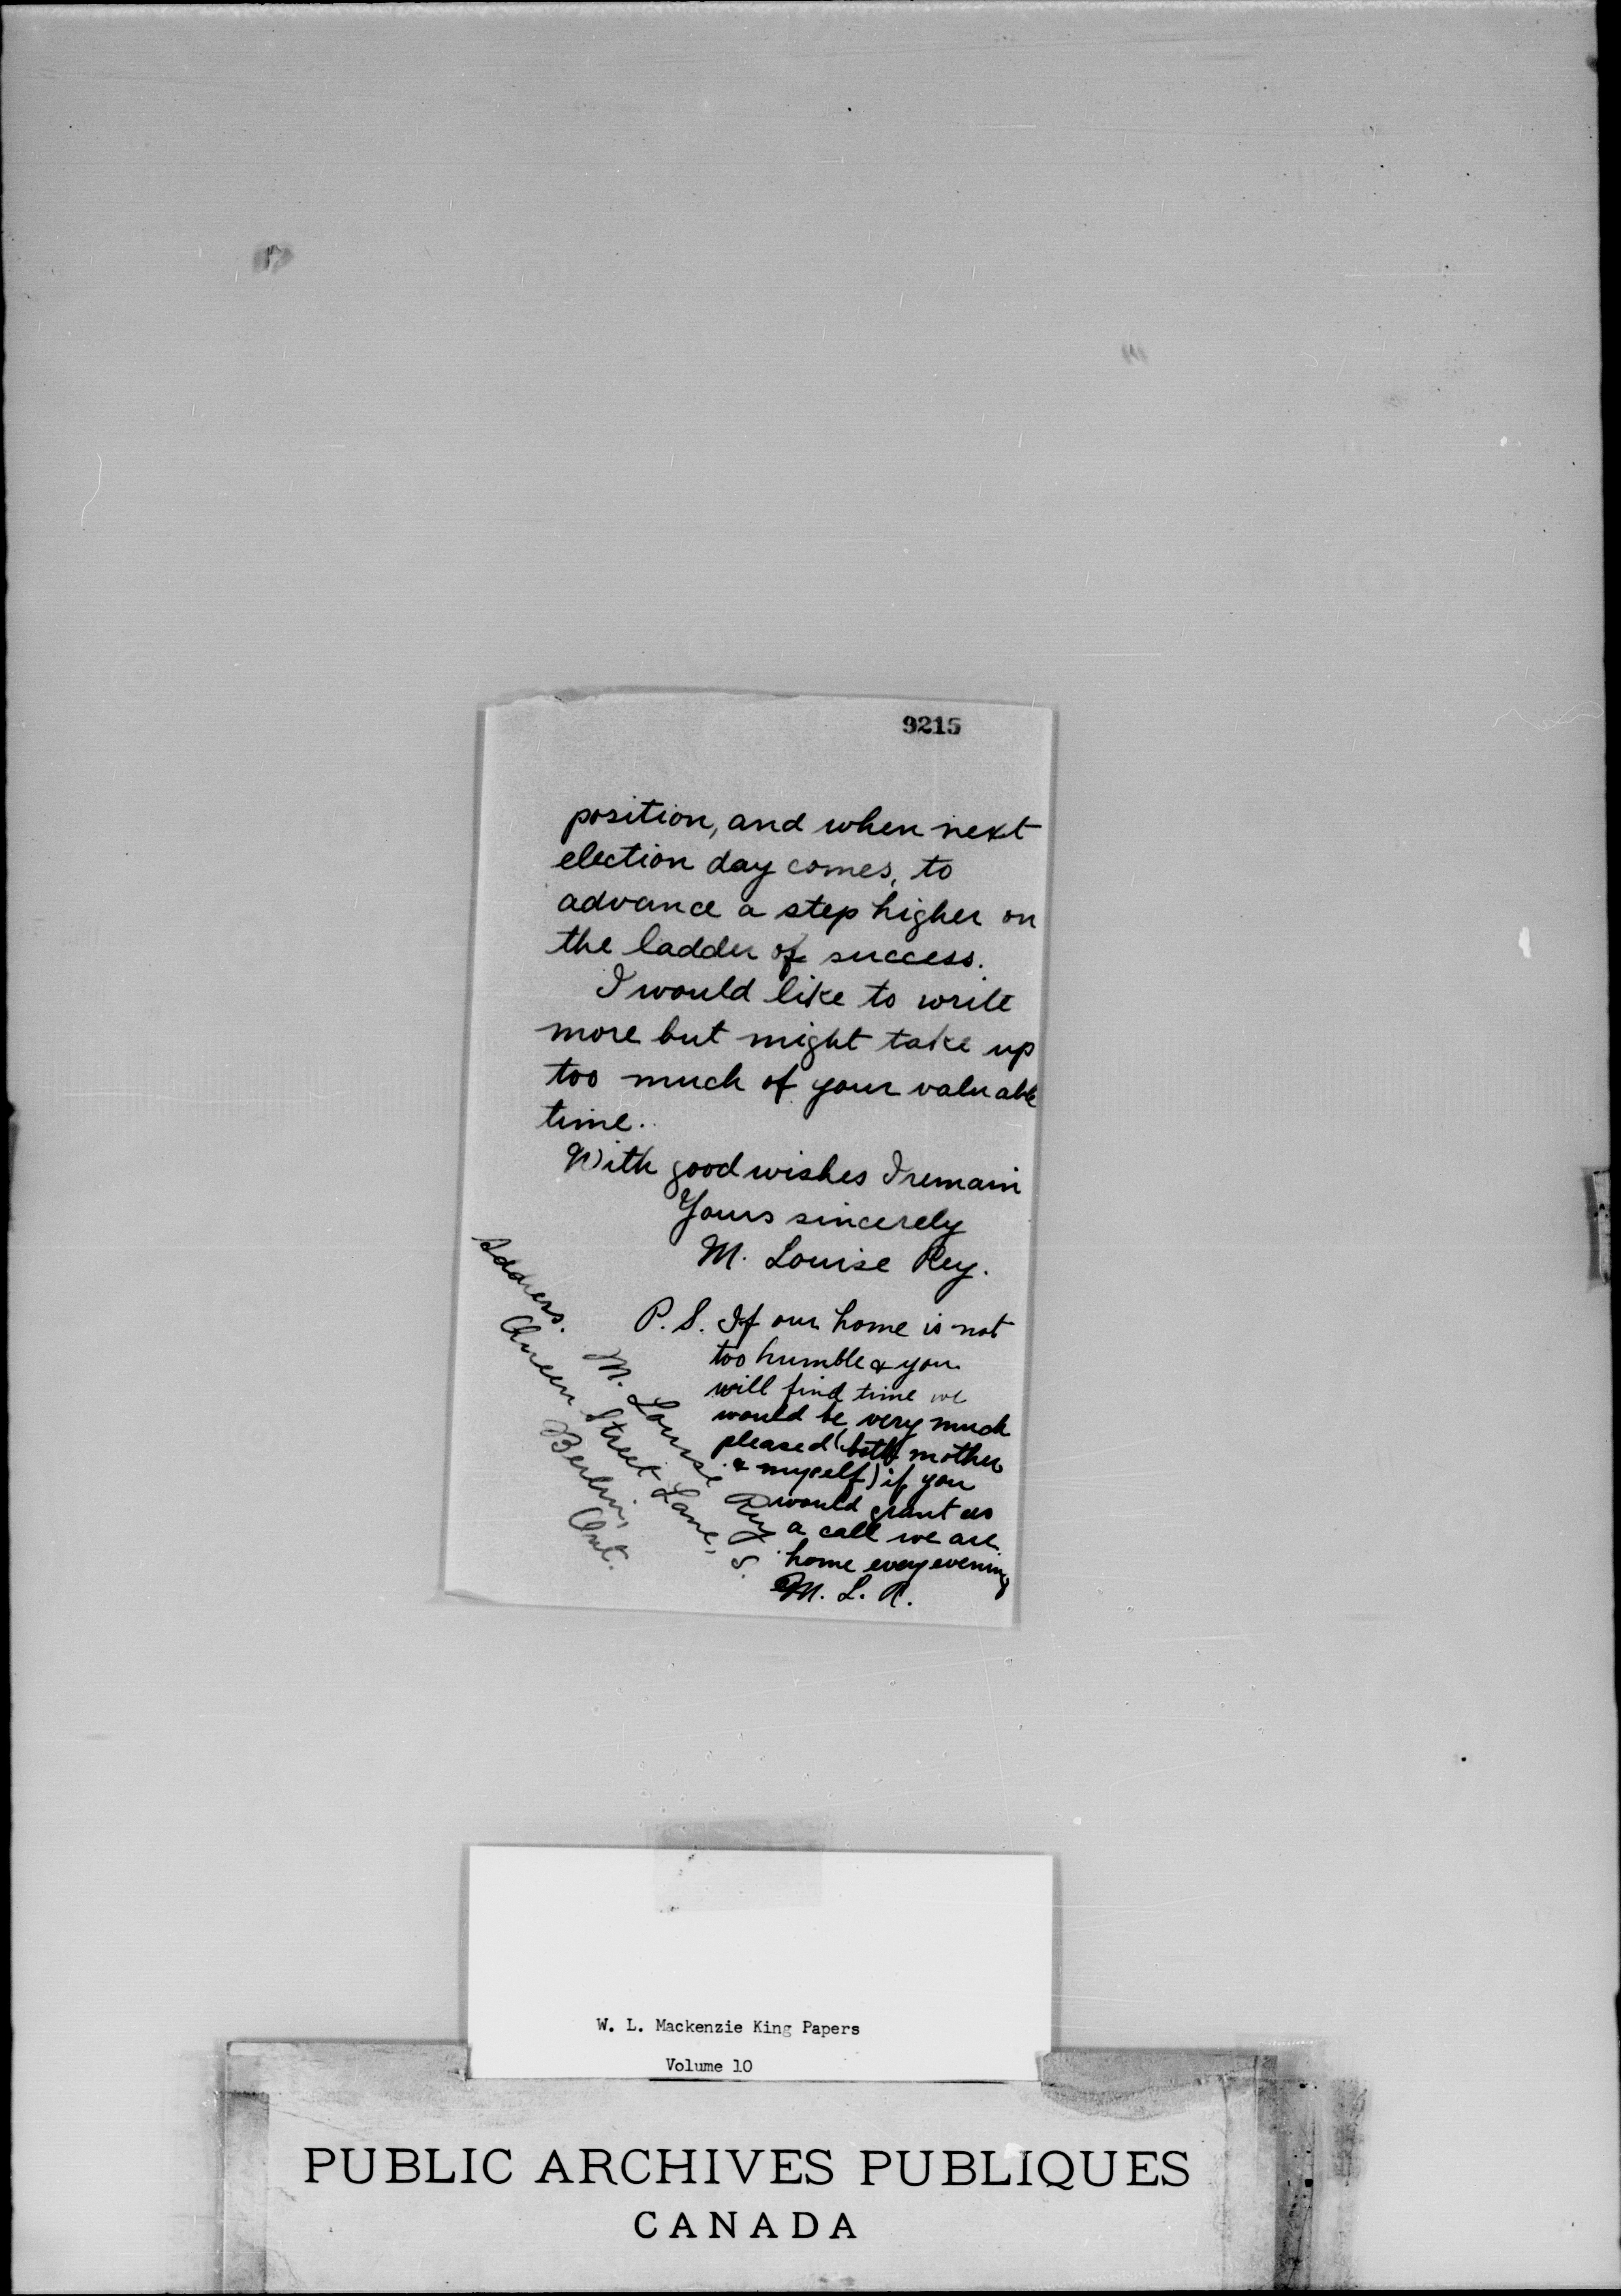 9215
position, and when next
election day comes, to
advance a step higher on
the ladder of success.
I would like to write
more but might take up
too much of your valuable
time.
With good wishes I remain
Yours sincerely
M. Louise Rey.
P. S. If our home is not
too humble & you
will find time we
would be very much
pleased (both mother
& myself) if you
would grant us
a call we are
home every evening
M. L. R.
Address.
M. Louise Rey
Queen Street Lane, S.
Berlin,
Ont.
W. L. Mackenzie King Papers
Volume 10
PUBLIC ARCHIVES PUBLIQUES
CANADA